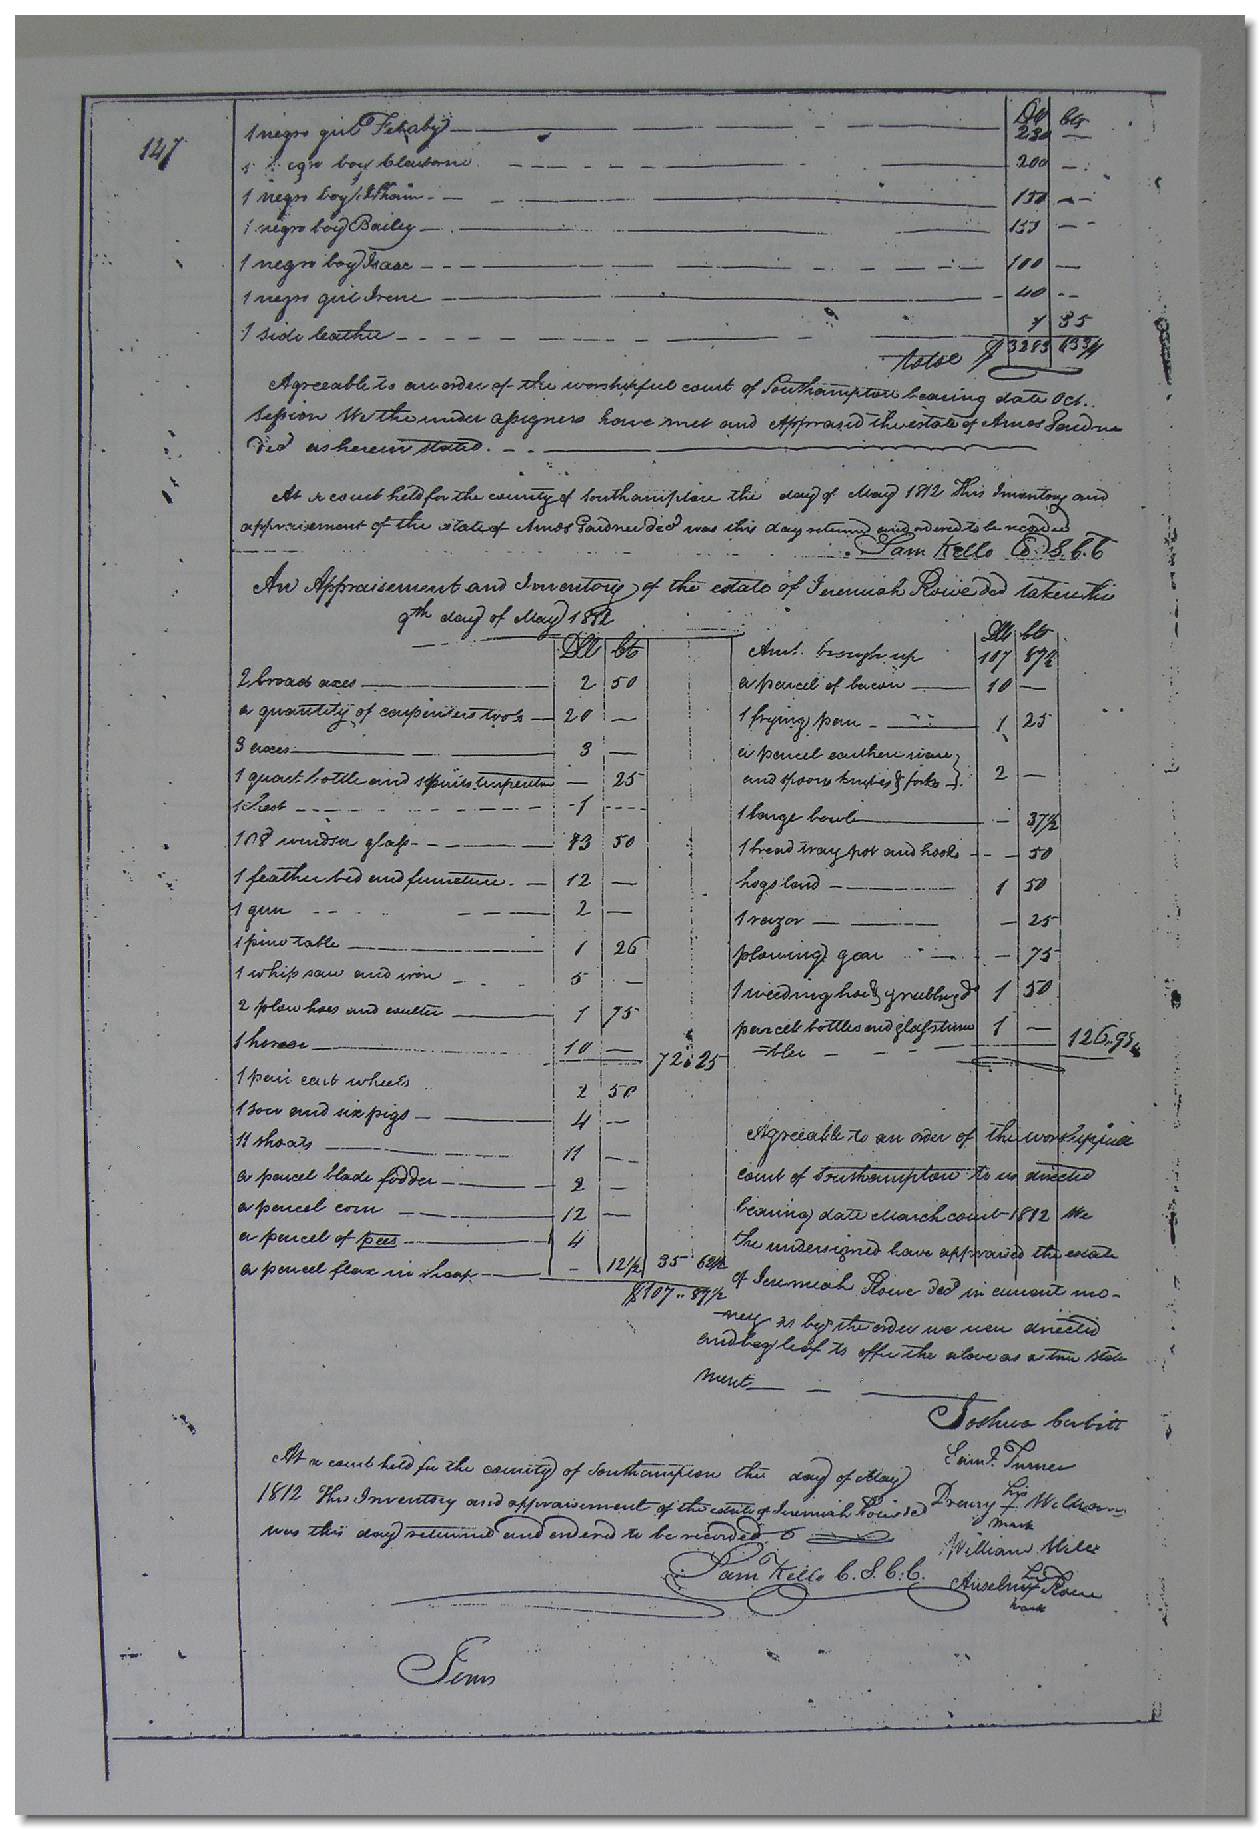 147
Dll Cts
1 negro girl Feraby 230 —
1 negro boy Claiborne 200 —
1 negro boy 150 —
1 negro boy Bailey 133 —
1 negro boy Isaac 100 —
1 negro girl Irene 40 --
1 side leather 7 35
total $ 3283 63 3/4
Agreeable to an order of the worshipful court of Southampton bearing date Oct.
Session We the under assigners have met and Appraised the estate of Amos Gardner
Decd as herein stated.
At a court held for the county of Southampton the day of May 1812 This Inventory and
appraisement of the estate of Amos Gardner decd was this day returned and ordered to be recorded
Sam Kello C. S. C. C
An Appraisement and Inventory of the estate of Jeremiah Rowe ded taken the
9th day of May 1812
Dll Cts
2 broad axes 2 50
a quantity of carpenters tools 20 —
3 axes 3 —
1 quart bottle and spirits turpentine — 25
1 Chest 1 ----
windsor glass 50
1 feather bed and furniture 12 —
1 gun 2 —
1 pine table 1 26
1 whip saw and iron 5 -
2 plow hoes and coulter 1 75
1 horse 10 — 72 25
1 pair cart wheels 2 50
1 sow and six pigs 4 —
11 shoats 11 —
a parcel blade fodder 2 —
a parcel corn 12 —
a parcel of peas 4
a parcel flax in sheaf - 12 1/2 35 62 1/2
$107 .. 87 1/2
Dll Cts
Amt. brough up 107 87 1/2
a parcel of bacon 10 —
1 frying pan 1 25
a parcel earthen ware
and spoons knives & forks 2 —
1 large bowl - 37 1/2
1 bread tray pot and hooks - 50
hogs lard 1 50
1 razor - 25
plowing gear - 75
1 weeding hoe & grubbing do 1 50
parcel bottles and glass tum 1 — 126.95
=bler
Agreeable to an order of the worshipful
court of Southampton to us directed
bearing date March court 1812 We
the undersigned have appraised the estate
of Jeremiah Rowe decd in current mo-
ney as by the order we were directed
and beg leaf to offer the above as a true state
ment
Joshua Corbitt
Saml. Turner
his
Drewry + Williams
mark
William
his
Anselm + Rowe
mark
At a court held for the county of Southampton the day of May
1812 This Inventory and appraisement of the estate of Jeremiah Rowe ded
was this day returned and ordered to be recorded
Sam Kello C. S. C. C.